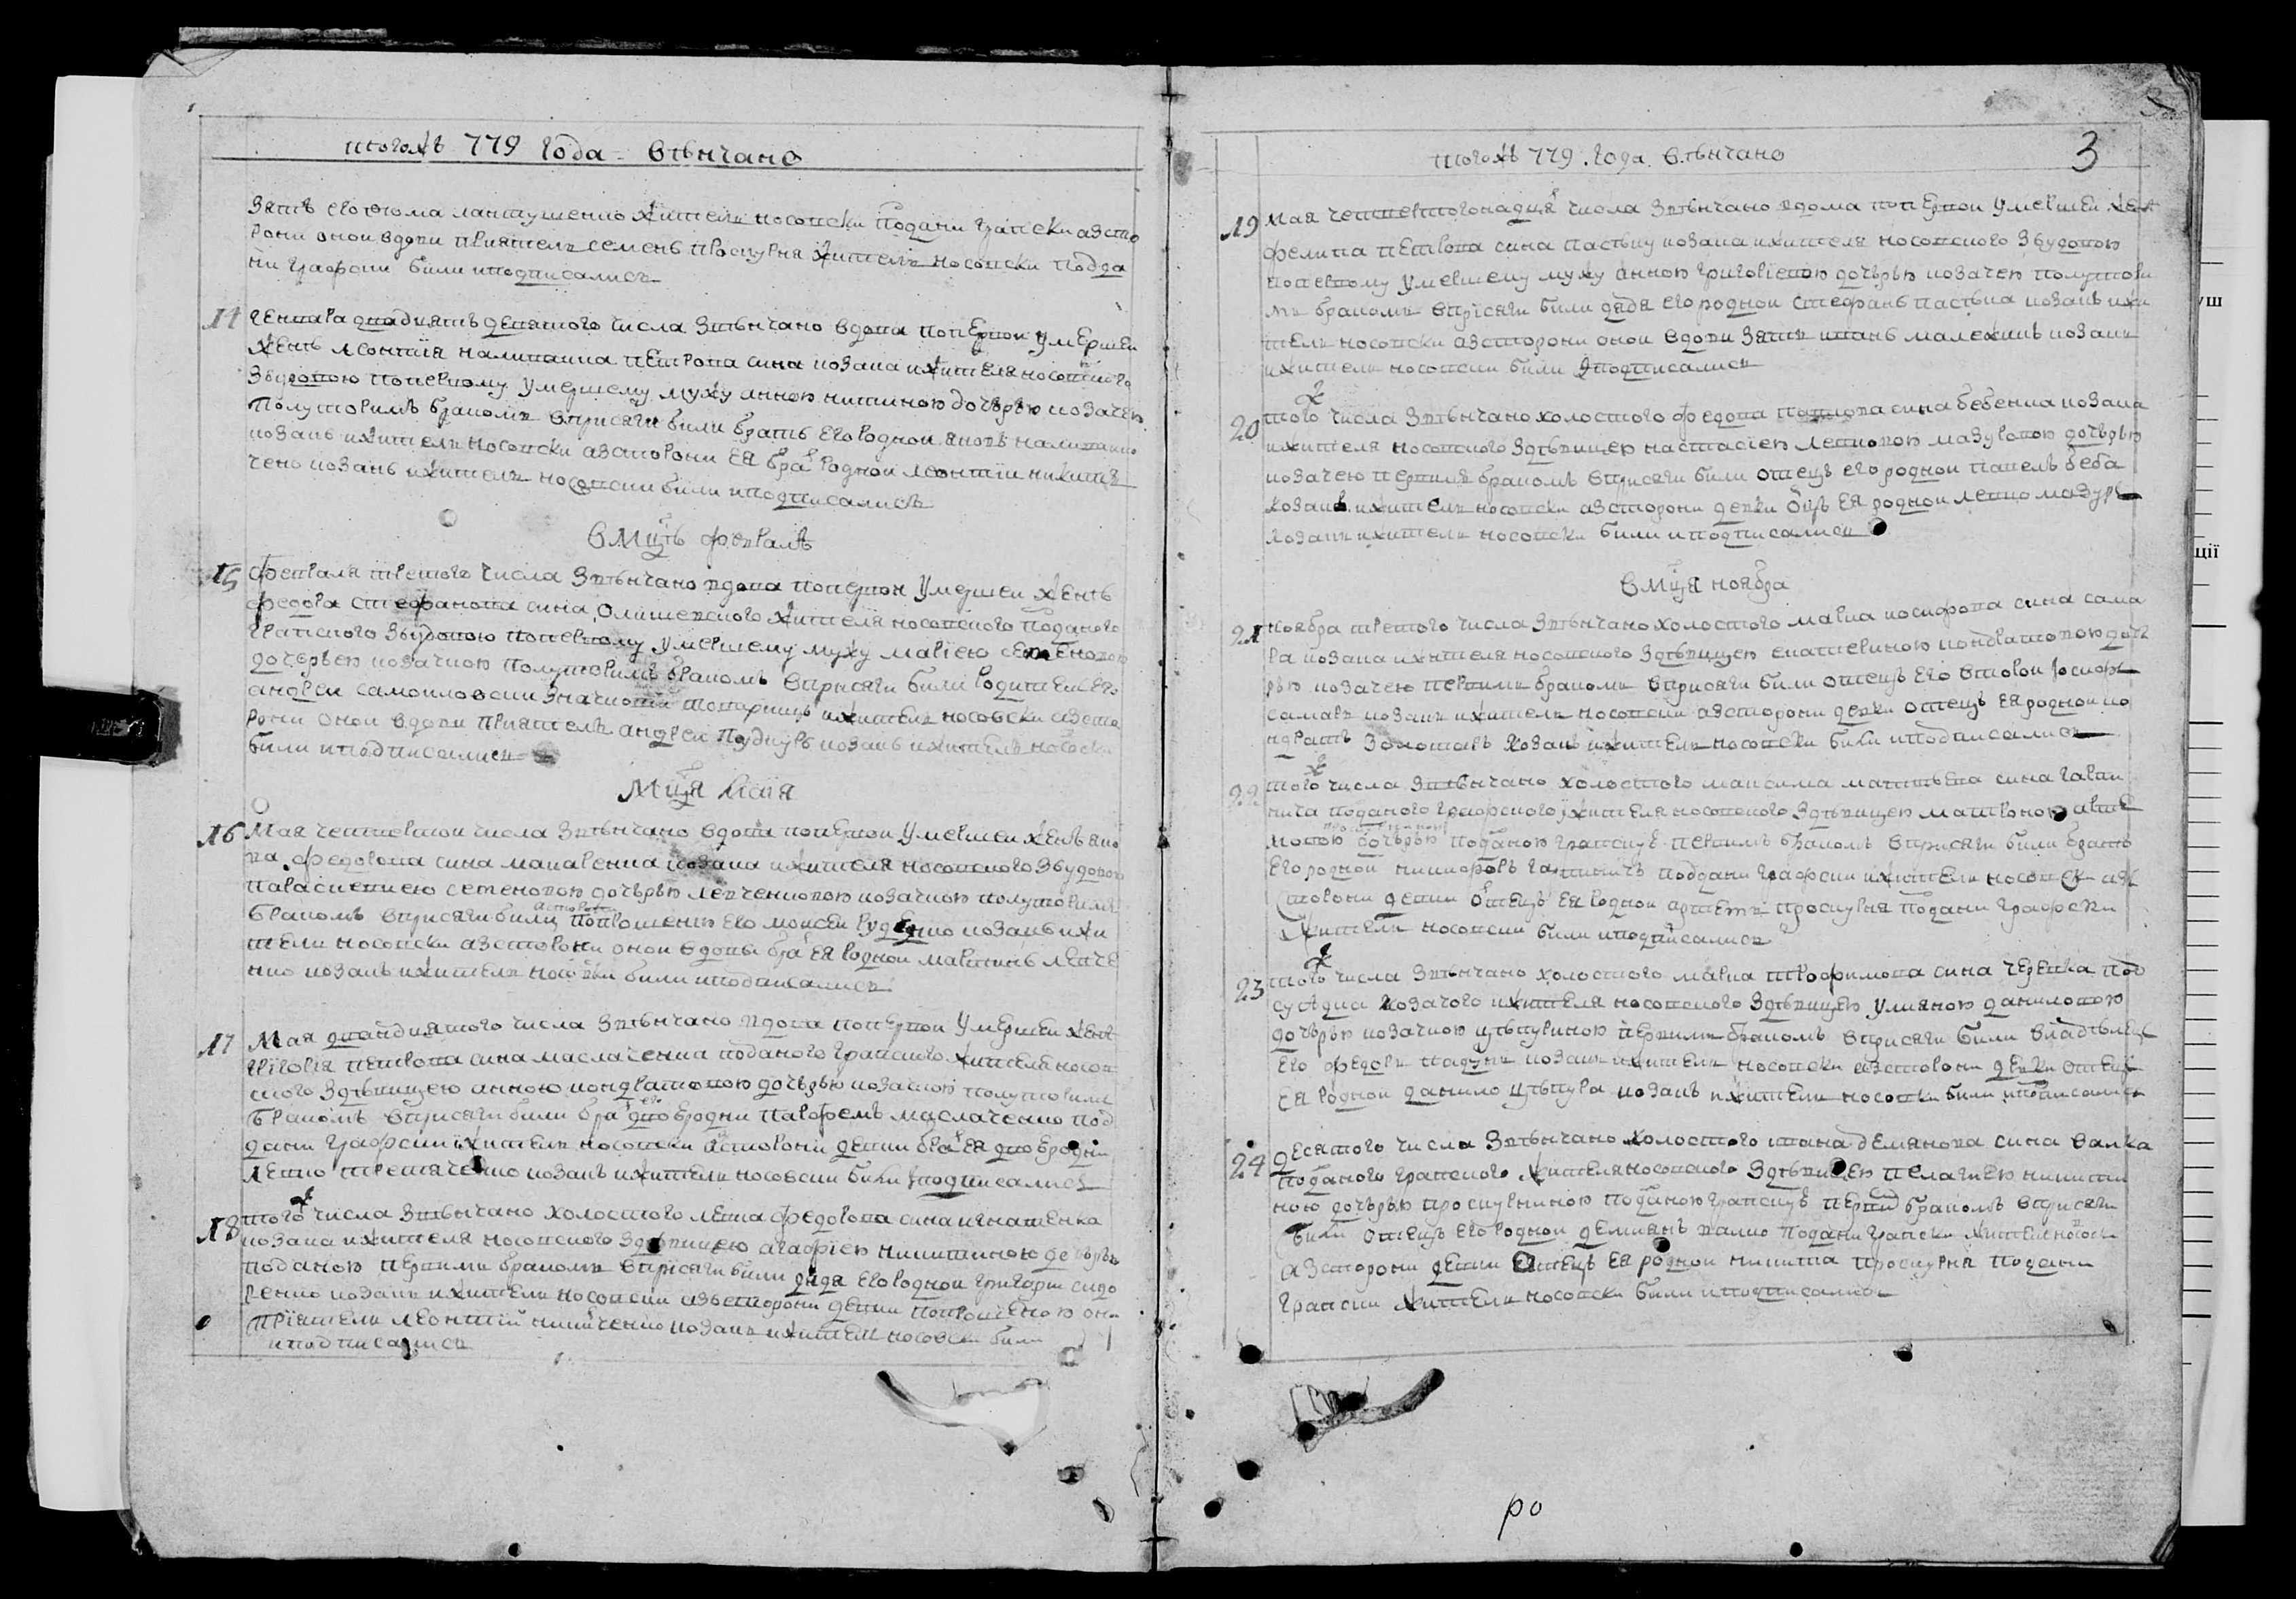 тогожъ 779 года вѣнчано
зять его фома лантушенко житель носовски подани грапски азсто
рони оной вдови приятель семенъ проскурня житель носовски подда
ни графски били и подписались
14 генвара двадцять девятого числа звѣнчано вдовца по первой умершей
женѣ леонтія наливайка петрова сина козака и жителя носовского
з вдовою по первому умершему мужу анною никитиною дочерью козачею
полуторимъ бракомъ в присяги били братъ его родной яковъ наливайко
козакъ и житель носовски аз сторони ея братъ родной леонтий никитя
ченко козакъ и житель носовски били и подписались
в мцѣ февралѣ
15 февраля третого числа звѣнчано вдовца по первой умершей женѣ
федора стефанова сина олишевского жителя носовского поданого
грапского з вдовою по первому умершему мужу марією семеновою
дочерью козачкою полуторимъ бракомъ в присяги били родитель его
андрей самойловски значковий товарищъ и житель носовски аз сто
рони оной вдови приятель андрей козакъ и житель носовски
били и подписались
мця мая
16 мая четвертого числа звѣнчано вдовца по первой умершей женѣ яко
ва федорова сина макаренка козака и жителя носовского з вдовою
параскевиею семеновою дочерью левченковою козачкою полуторимъ
бракомъ в присяги били по прошенію его моисей руденко козакъ и жи
тель носовски аз сторони оной вдови братъ ея родной мартинъ левче
нко козакъ и житель носовски били и подписались
17 мая двайдцятого числа звѣнчано вдовца по первой умершей женѣ
григорія петрова сина маслаченка поданого грапского жителя носов
ского з дѣвицею анною кондратовою дочерью козачкою полуторимъ
бракомъ в присяги били братъ его двоюродни парфемъ маслаченко под
дани графски и житель носовски аз сторони девки братъ ея двоюродни
левко третяченко козакъ и житель носовски били и подписались
18 того ж числа звѣнчано холостого левка федорова сина игнатенка
козака и жителя носовского з дѣвицею агафією никитиною дочерью
поданою первимъ бракомъ в присяги били дядя его родной григорий сидо
ренко козакъ и житель носовски аз сторони девки по прошению он
приятель леонтий козакъ и житель носовски били
и подписались
тогожъ 779 года вѣнчано
3
19 мая четвертогонадцять числа звѣнчано вдовца по первой умершей женѣ
филипа петрова сина паствку козака и жителя носовского з вдовою
по первому умершему мужу анною григориевою дочерью козачею полутори
мъ бракомъ в присяги били дядя его родной стефанъ козакъ и жи
тель носовски аз сторони оной вдови зять иванъ козакъ
и житель носовски били и подписались
20 того ж числа звѣнчано холостого федора павлова сина бебенка козака
и жителя носовского з дѣвицею настасією левковою мазуровою дочерью
козачею первимъ бракомъ в присяги били отецъ его родной павелъ беба
козакъ и житель носовски аз сторони девки оцъ ея родной левко мазуръ
козакъ и житель носовски били и подписались
в мця ноября
21 ноября третого числа звѣнчано холостого марка иосифова сина сама
ра козака и жителя носовского з дѣвицею екатериною кондратовою доче
рью козачею первимъ бракомъ в присяги били отецъ его второй иосифъ
самаръ козакъ и житель носовски аз сторони девки отецъ ея родной ко
ндратъ золотаръ козакъ и житель носовски били и подписались
22 того ж числа звѣнчано холостого максима матвѣева сина
поданого графского и жителя носовского з дѣвицею матроною арте
мовою дочерью поданою первимъ бракомъ в присяги били братъ
его родной никифоръ поддани графски и житель носовски аз
сторони девки отецъ ея родной артемъ проскурня подани графски
житель носовски били и подписались
23 того ж числа звѣнчано холостого марка трофимова сина черепка под
сусѣдка козачого и жителя носовского з дѣвицею улияною даниловою
дочерью козачкою цѣпуриною первимъ бракомъ в присяги били владѣлецъ
его федоръ козакъ и житель носовски аз сторони девки отецъ
ея родной данило цѣпура козакъ и житель носовски били и подписались
24 десятого числа звѣнчано холостого ивана демянова сина валка
поданого грапского жителя носовского з дѣвицею пелагиею никити
ною дочерью проскурниною поданою первимъ бракомъ в присяги
били отецъ его родной демиянъ валко подани грапски житель носовски
аз сторони девки отецъ ея родной никита проскурня подани
грапски житель носовски били и подписались
ро
уш
ції